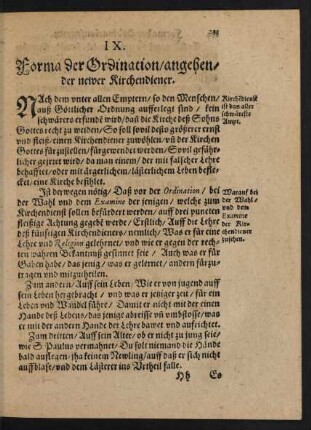 IX.
Forma der Ordination/ angehen/
der newer Kirchendiener.
NAch dem vnter allen Emptern/ so den Menschen/
auß Göttlicher Ordnung aufferlegt sind/ kein
schwärers erfund wird/ daß die Kirche deß Sohns
Gottes recht zu weiden/ So soll soviel desto größerer ernst
vnd fleiß/ einen Kirchendiener zuwöhlen/ vñ der Kirchen
Gottes fürzustellen/ fürgewendet werden/ Sovil gefähr-
licher geirret wird/ da man einem/ der mit falscher Lehre
behafftet/ oder mit ärgerlichem/ lästerlichem Leben befle-
cket/ eine Kirche befihlet.
Kirchdienst
ist das aller
schwäreste
Ampt.
Ist derwegen nötig/ Daß vor der Ordination/ bei
der Wahl vnd dem Examine der jenigen/ welche zum
Kirchendienst sollen befürdert werden/ auff drei puncten
fleißige Achtung gegebẽ werde/ Erstlich/ Auff die Lehre
deß künfftigen Kirchendieners/ nemlich/ Was er für eine
Lehre vnd Religion gelehrnet/ vnd wie er gegen der rech-
ten wahren Bekantnuß gesinnet seie/ Auch was er für
Gaben habe/ das jenig/ was er gelernet/ andern fürzu-
tragen vnd mitzutheilen.
Warauf bei
der Wahl/
vnd dem
Examine
der Kir-
chendiener
zusehen.
Zum andern/ Auff sein Leben/ Wie er von jugend auff
sein Leben hergebracht/ vnd was er jeniger zeit/ für ein
Leben vnd Wandel führe/ Damit er nicht mit der einen
Hande deß Lebens/ das jenige abreisse vñ vmbstosse/ was
er mit der andern Hande der Lehre bawet vnd auffrichtet.
Zum dritten/ Auff sein Alter/ ob er nicht zu jung seie/
wie S. Paulus vermahnet/ Du solt niemand die Hände
bald auflegen/ jha keinem Newling/ auff daß er sich nicht
auffblase/ vnd dem Lästerer ins Vrtheil falle.
Hh Es